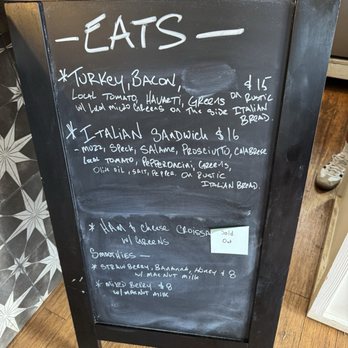 - EATS -
* TURKEY, BACON, $15
LOCAL TOMATO, HAVARTI, GREENS ON RUSTIC
W/ GREENS ON THE SIDE ITALIAN
BREAD.
* ITALIAN SANDWICH $16
- MOZZ, SPECK, SALAME, PROSCIUTTO, CALABRESE
LOCAL TOMATO, PEPPERONCINI, GREENS,
OLIVE OIL, SALT, PEPPER. ON RUSTIC
ITALIAN BREAD.
* HAM & CHEESE CROISSA
W/ GREENS
Sold
Out
SMOOTHIES -
* STRAWBERRY, BANANA, HONEY $8
W/ MAC NUT MILK
* MIXED BERRY $8
W/ MAC NUT MILK